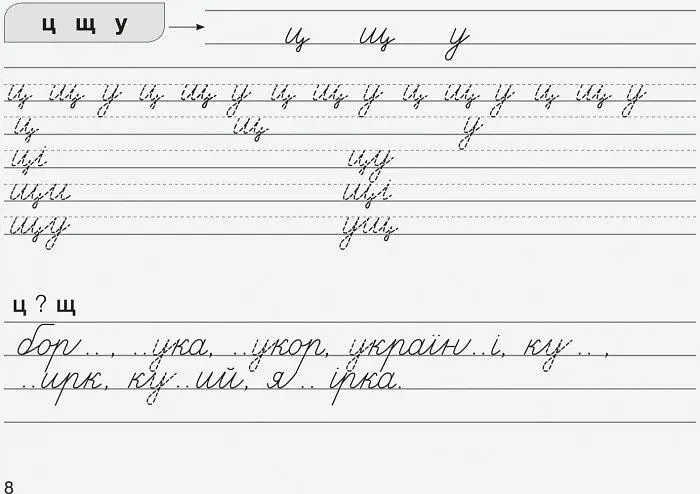 ц щ у
ц щ у
ц щ у ц щ у ц щ у ц щ у ц щ у
ц щ у
ці цу
щи щі
щу ущ
ц ? щ
бор.. , ..ука, ..укор, україн..і, ку .. ,
..ирк, ку..ий, я.. ірка.
8